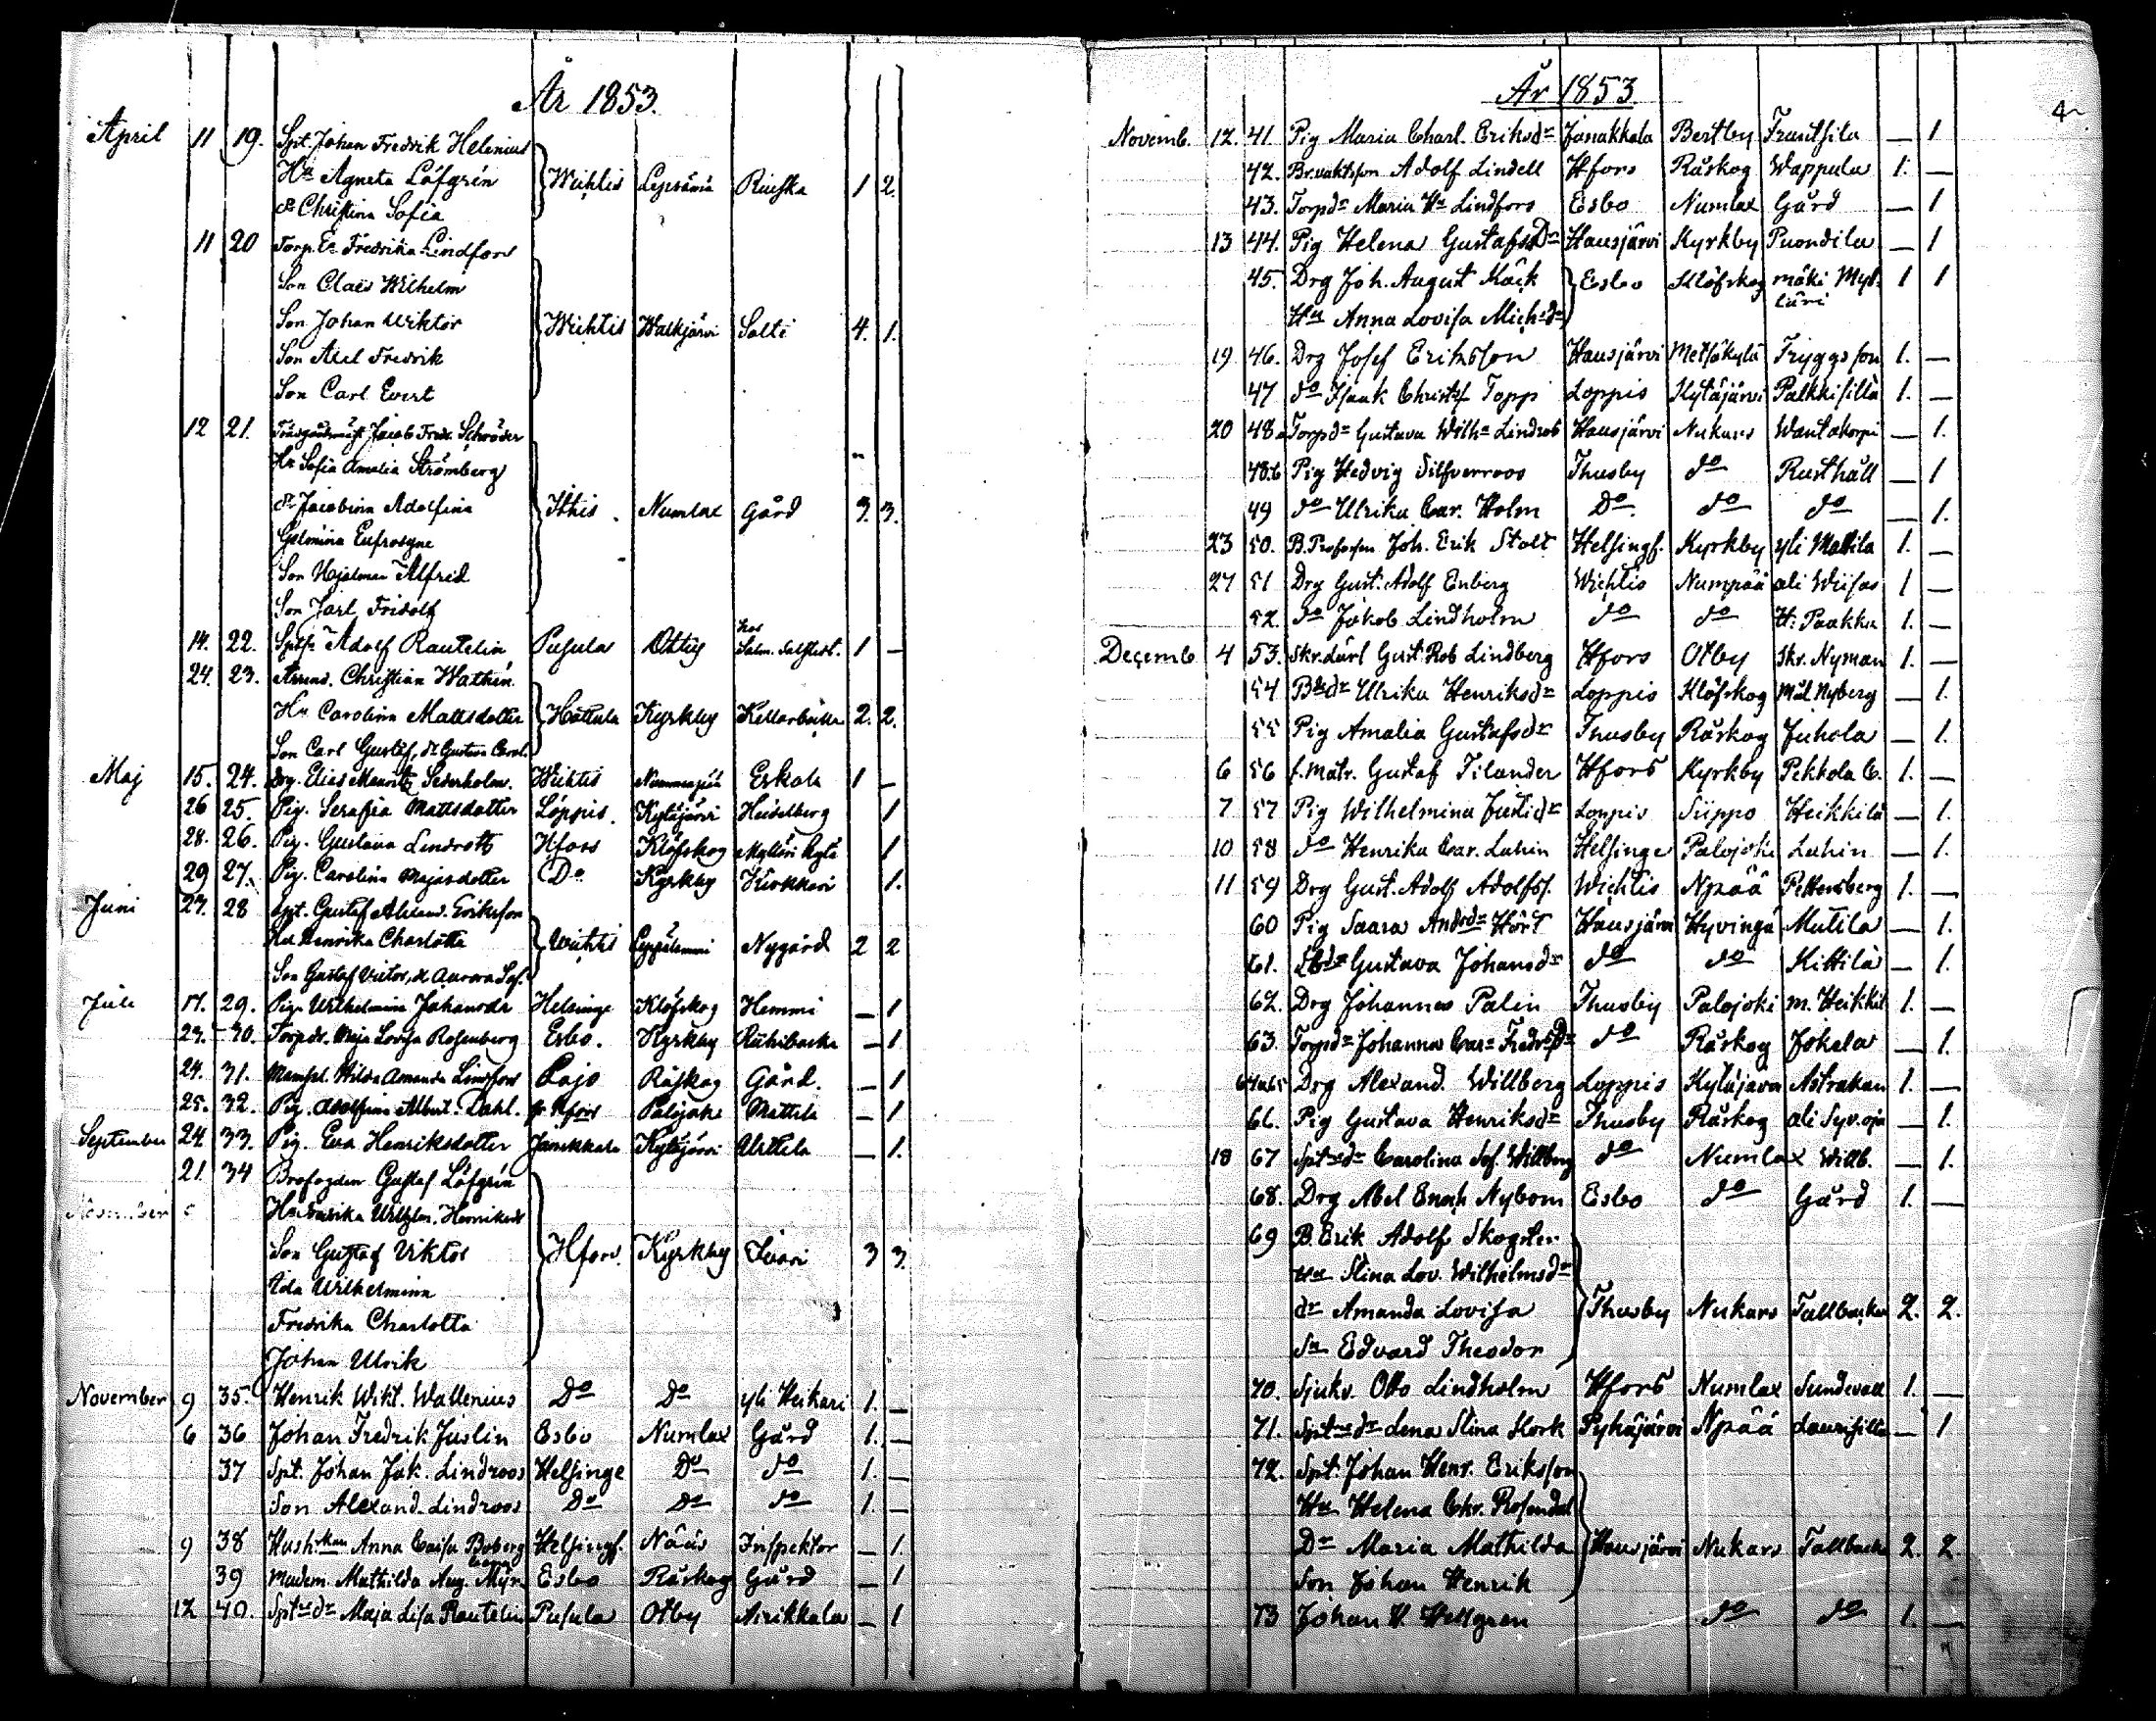 År 1853.
April 11 19. Spt. Johan Fredrik Helenius
Hu Agneta Löfgrén Wichtis Lepsämä 1 2.
dr Christina Sofia
11 20 Torp. E. Fredrika Lindfors
Son Claës Wilhelm
Son Johan Wiktor Wichtis Walkjärvi Salti 4. 1.
Son Axel Fredrik
Son Carl Evert
12 21. Trädgårdsmäst Jacob Fredr. Schröder
Hu Sofia Amalia Strömberg
dr Jacobina Adolfina Ithis Numlax Gård 3. 3.
Gelmina Eufrosyne
Son Hjalmar Alfred
Son Jarl Fridolf
14. 22. Adolf Rautelin Pusula Ottby hos 1 —
24. 23. Arend. Christian Wathén
Hu Carolina Mattsdotter Hattula Kyrkby Kellarbacka 2. 2.
Son Carl Gustaf, dr Gustava Carol.
Maj 15. 24. Drg. Elias Mauritz Sederholm. Wichtis Nummenpää Erkola 1 —
26 25. Pig. Serafia Mattsdotter Loppis. Kytäjärvi Heidelberg 1
28. 26. Pig. Gustava Lindroth Hfors Klöfskog Mylläri Kytä 1
29 27. Pig. Carolina Majasdotter Do Kyrkby Kirkkari 1.
Juni 27. 28 Spt. Gustaf Alexand. Eriksson
Hu Henrika Charlotta Wichtis Leppälammi Nygård 2 2
Son Gustaf Victor, dr Aurora Sof.
Juli 17. 29. Pig. Wilhelmina Johansdr Helsinge Klöfskog Hemmi — 1
23. 30. Torpdr. Maja Lovisa Rosenberg Esbo. Kyrkby — 1
24. 31. Mamsel. Hilda Amanda Lindfors Lojo Råskog Gård. — 1
25. 32. Pig. Adolfina Albert. Dahl. fr Hfors Palojoki Mattila — 1
September 24. 33. Pig. Eva Henriksdotter Janakkala Kytäjärvi Urttila — 1.
21. 34 Brofogden Gustaf Löfgrén
November Hu Fredrika Wilhelm. Henriksdr
Son Gustaf Viktor Hfors. Kyrkby Svari 3 3.
Ida Wilhelmina
Fredrika Charlotta
Johan Ulrik
November 9 35. Henrik Wikt. Wallenius Do Do yli Heikari 1. —
6 36 Johan Fredrik Juslin Esbo Numlax Gård 1. —
37 Spt. Johan Jak. Lindroos Helsinge Do do 1. —
Son Alexand. Lindroos Do Do do 1. —
9 38 Hush. Anna Caisa Boberg Helsingf. Nääs Inspektor — 1.
39 Madem. Mathilda Aug. Esbo Råskog Gård — 1
12 40. Sptsdr Maja Lisa Rautelin Pusula Otby Nirikkala — 1
År 1853 4
Novemb. 12. 41. Pig Maria Charl. Eriksdr Janakkala Bertby Frantsila — 1
42. Br.vaktsson Adolf Lindell Hfors Råskog Wappula 1. —
43. Torpdr Maria Ha Lindfors Esbo Numlax Gård — 1
13 44. Pig Helena GustafsDr Hausjärvi Kyrkby Puondila — 1
45. Drg Joh. August Kack Esbo Klöfskog mäki Myl- 1 1
Hu Anna Lovisa Michsdr läri
19 46. Drg Josef Eriksson Hausjärvi Metsäkylä Tryggsson 1. —
47 do Isaak Christ. Topp Loppis Kytäjärvi Palkkisilla 1. —
20 48a Torpdr Gustava Wilha Lindroos Hausjärvi Nukars Wantakorpi — 1.
48.b Pig Hedvig Silfverroos Thusby do Rusthåll — 1
49 do Ulrika Car. Holm Do do do — 1.
23 50. B. Professen Joh. Erik Stolt Helsingf. Kyrkby yli Mattila 1. —
27 51 Drg Gust. Adolf Enberg Wichtis Numpää ali Wiisas 1 —
52. do Jakob Lindholm do do H: Paakka 1. —
Decemb 4 53. Skr.Lärl Gust. Rob Lindberg Hfors Otby Skr. Nyman 1. —
54 Bdr Ulrika Henriksdr Loppis Klöfskog Mål. Nyberg — 1.
55 Pig Amalia Gustafsdr Thusby Råskog Juhola — 1.
6 56 f. Matr. Gustaf Tilander Hfors Kyrkby Pekkola C. 1. —
7 57 Pig Wilhelmina Justidr Loppis Siippo Heikkilä — 1.
10 58 do Henrika Car. Luhin Helsinge Palojoki Luhin — 1.
11 59 Drg Gust. Adolf Adolfss. Wichtis Npää Pettersberg 1. —
60 Pig Saara Andrdr Hört Hausjärvi Hyvingä Mutila — 1.
61. Gustava Johansdr do do Kittilä — 1.
62. Drg Johannes Palin Thusby Palojoki m. Heikkil 1. —
63. Torpdr Johanna Car. FredrsDr do Råskog Jokela — 1.
64a65 Drg Alexand. Willberg Loppis Kytäjärvi Astrakan 1. —
66. Pig Gustava Henriksdr Thusby Råskog ali Syv.oja — 1.
18 67 Sptsdr Carolina Sof. Willberg do Numlax Willb. — 1.
68. Drg Abel Enoch Nybom Esbo do Gård 1. —
69 B. Erik Adolf Skogster
Hu Stina Lov. Wilhelmsdr
dr Amanda Lovisa Thusby Nukars Tallbacka 2. 2.
Sn Edvard Theodor
70. Sjukv. Otto Lindholm Hfors Numlax Sundevall 1. —
71. Sptsdr Lena Stina Hork Pyhäjärvi Npää Laurisilla — 1
72. Spt. Johan Henr. Eriksson
Hu Helena Chr. Rosendal
Dr Maria Mathilda Hausjärvi Nukars Tallbacka 2. 2.
Son Johan Henrik
73 Johan H. Hellgren do do 1. —